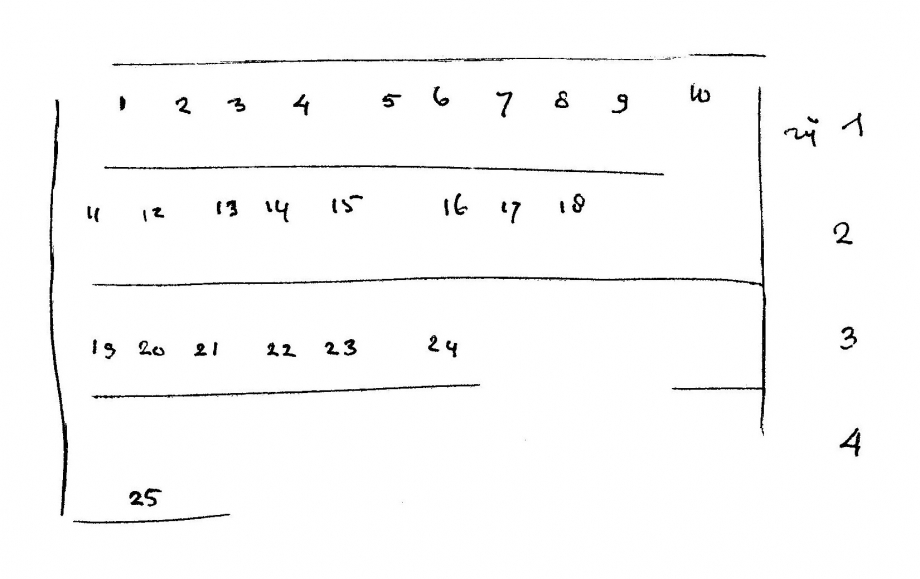 1 2 3 4 5 6 7 8 9 10 1
11 12 13 14 15 16 17 18 2
19 20 21 22 23 24 3
25 4